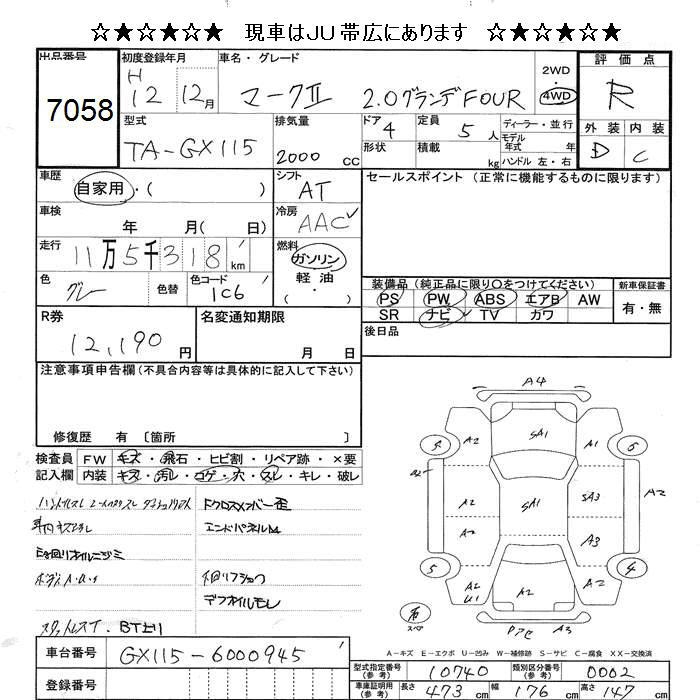 ☆★☆★☆ 現車はJU帯広にあります ☆★☆★☆
出品番号 7058
初度登録年月 H 12 12月
車名・グレード マークⅡ 2.0グランデFOUR
2WD・4WD
評価点 R
型式 TA-GX115
排気量 2000 cc
ドア 4 定員 5人
ディーラー・並行
形状 積載 kg
モデル年式 年式
ハンドル 左・右
外装 内装
D C
車歴 自家用・( )
シフト AT
セールスポイント (正常に機能するものに限ります)
車検 年 月( 日)
冷房 AAC
走行 11万5千318km
燃料 ガソリン 軽油 ・
色 グレー 色替 色コード 1C6
装備品 (純正品に限り○をつけてください)
新車保証書
PS PW ABS エアB AW
SR ナビ TV カワ
有・無
R券 12,190円
名変通知期限 月 日
後日品
注意事項申告欄 (不具合内容等は具体的に記入して下さい)
修復歴 有 〔箇所 〕
検査員記入欄
FW キズ・飛石・ヒビ割・リペア跡・×要
内装 キズ・汚レ・コゲ・穴・スレ・キレ・破レ
エンドパネルM
下回リフショク
デフオイルモレ
A4
A2 SA1 A1
A2 SA1 SA3 A2
A2 A3
A2 U1 A2 A2
A3
スペア
A-キズ E-エクボ U-凹み W-補修跡 S-サビ C-腐食 XX-交換済
車台番号 GX115-6000945
登録番号
型式指定番号 (参考) 10740 類別区分番号 (参考) 0002
車庫証明用 (参考) 長さ 473cm 幅 176cm 高さ 147cm